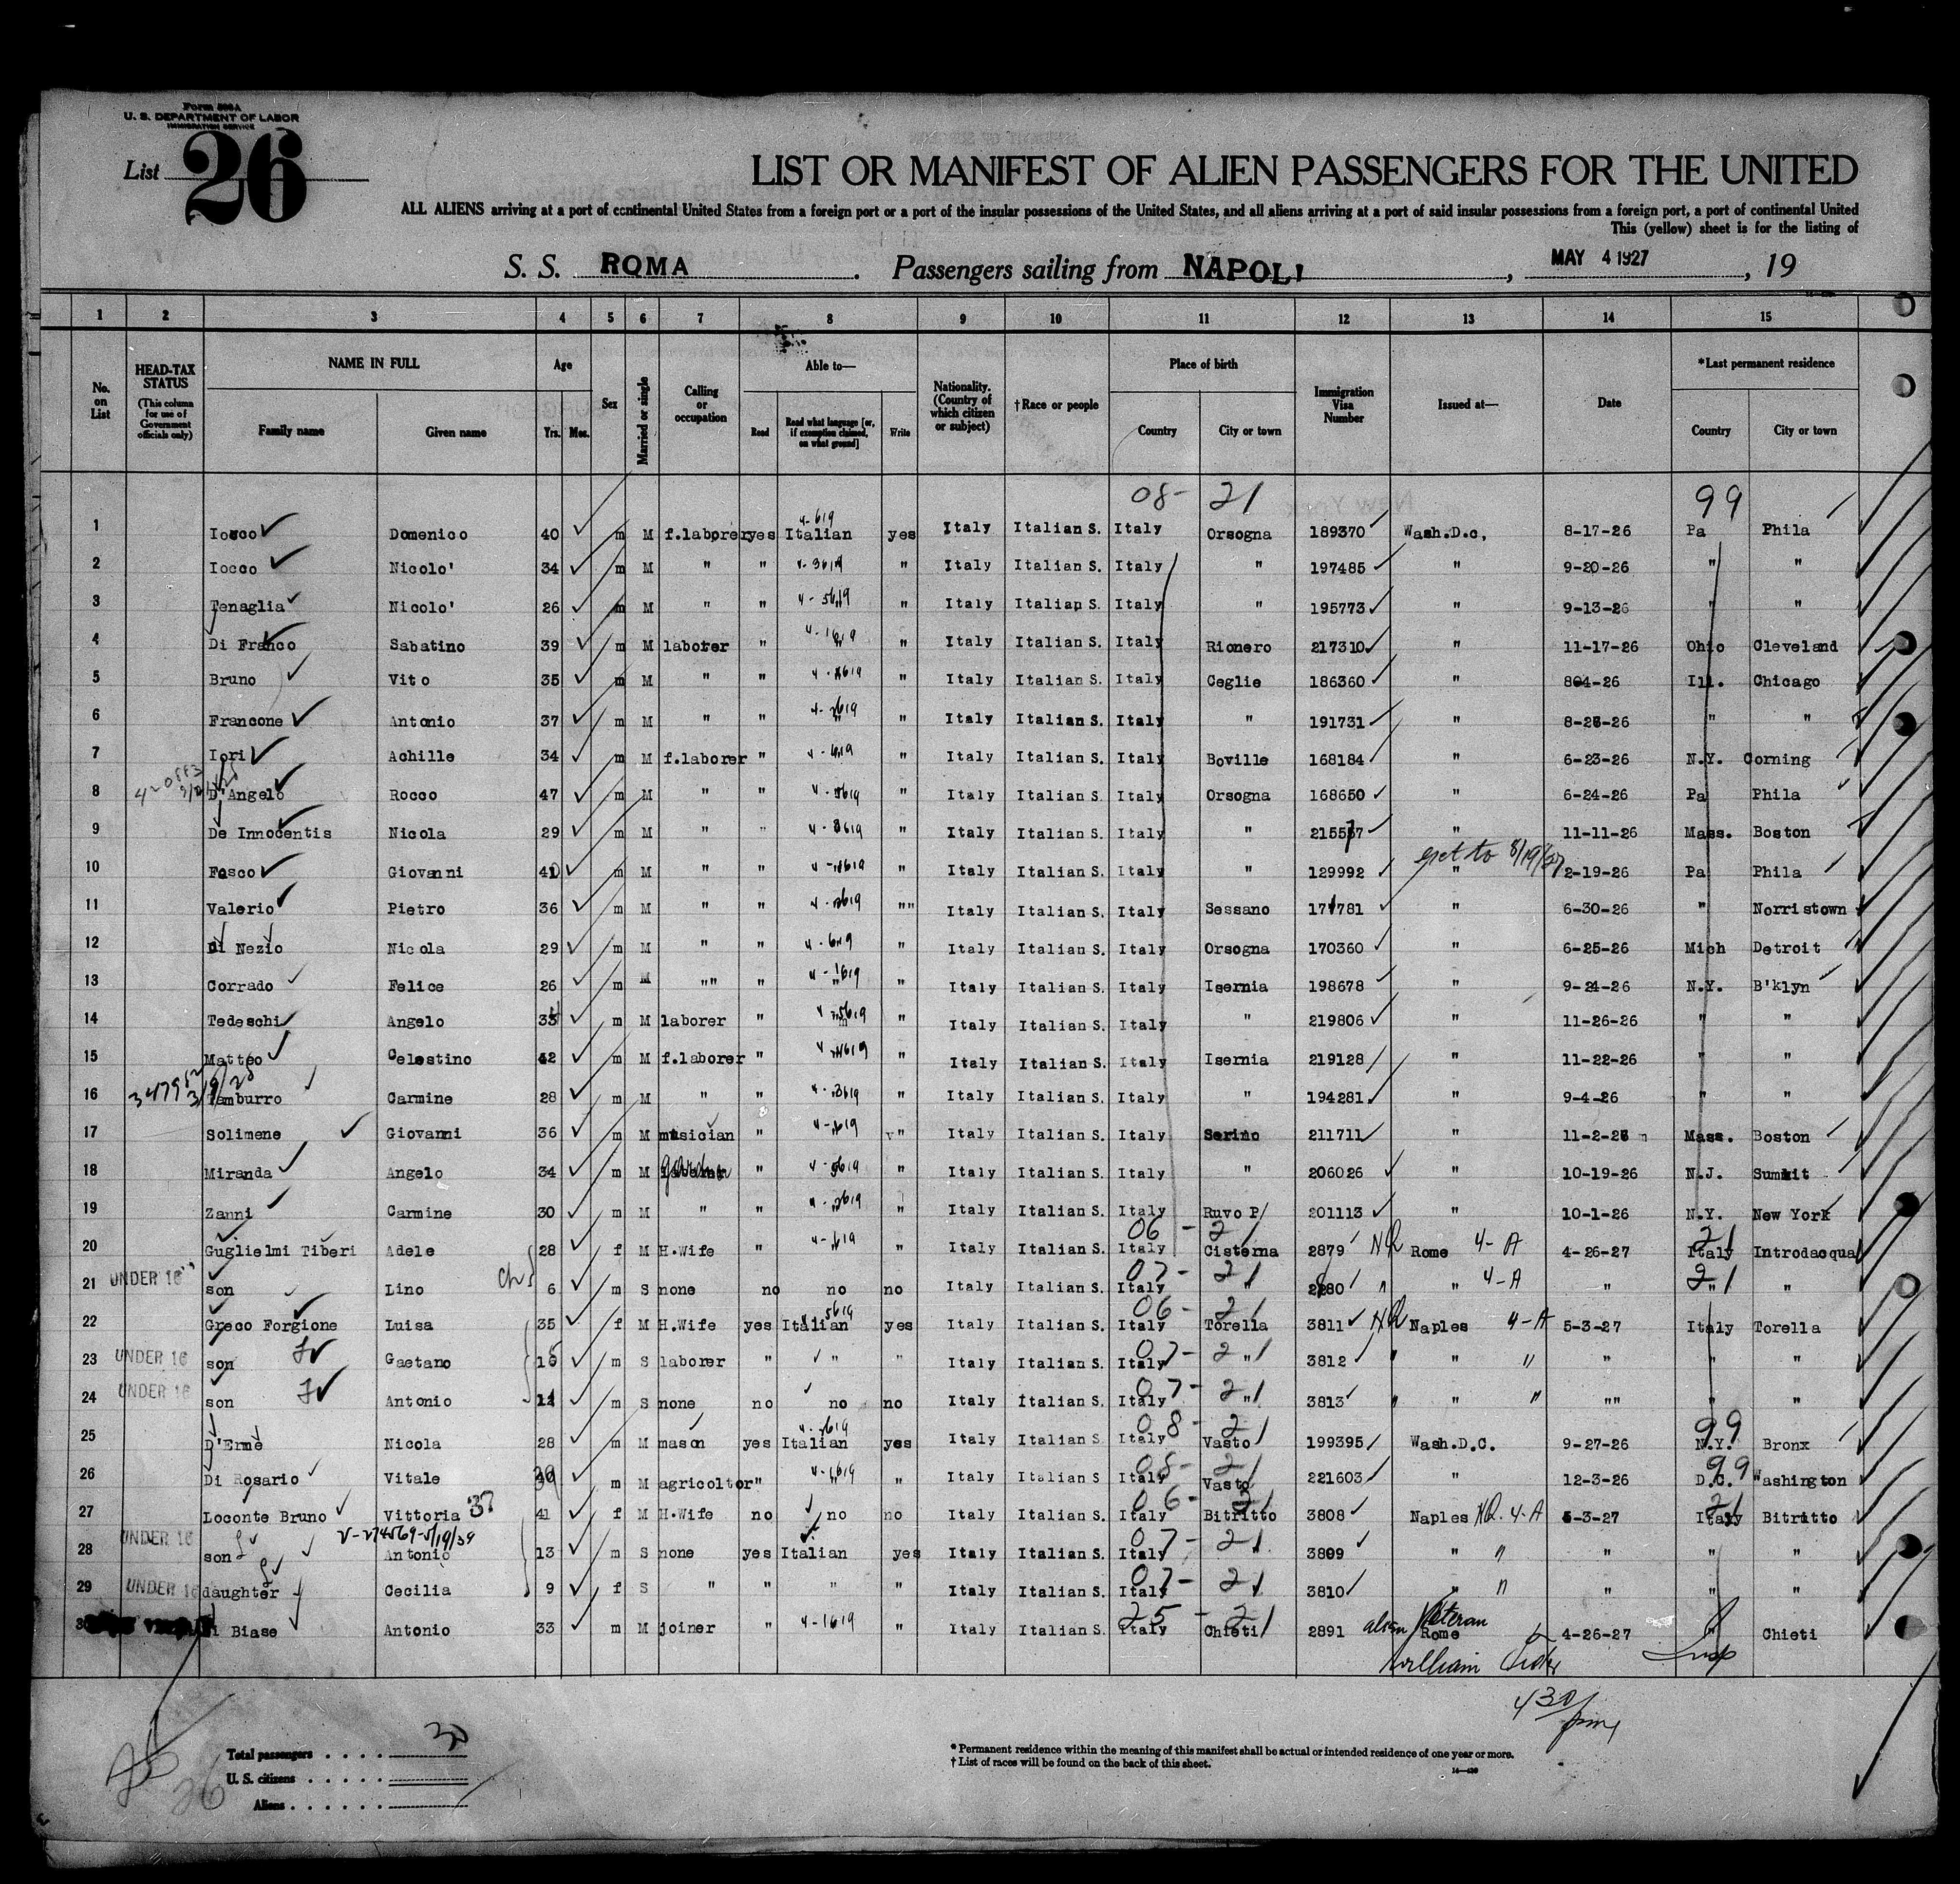 Form 500A
U. S. DEPARTMENT OF LABOR
IMMIGRATION SERVICE
List 26
LIST OR MANIFEST OF ALIEN PASSENGERS FOR THE UNITED
ALL ALIENS arriving at a port of continental United States from a foreign port or a port of the insular possessions of the United States, and all aliens arriving at a port of said insular possessions from a foreign port, a port of continental United
This (yellow) sheet is for the listing of
S. S. ROMA . Passengers sailing from NAPOLI , MAY 4 1927 , 19
1 2 3 4 5 6 7 8 9 10 11 12 13 14 15
No. on List HEAD-TAX STATUS (This column for use of Government officials only) NAME IN FULL Family name Given name Age Yrs. Mos. Sex Married or single Calling or occupation Able to— Read Read what language [or, if exemption claimed, on what ground] Write Nationality. (Country of which citizen or subject) †Race or people Place of birth Country City or town Immigration Visa Number Issued at— Date *Last permanent residence Country City or town
08- 21 99
1 Iocco Domenico 40 m M f.laborer yes 4-619 Italian yes Italy Italian S. Italy Orsogna 189370 Wash.D.c, 8-17-26 Pa Phila
2 Iocco Nicolo' 34 m M " " 4-3619 " Italy Italian S. Italy " 197485 " 9-20-26 " "
3 Tenaglia Nicolo' 26 m M " " 4-5619 " Italy Italian S. Italy " 195773 " 9-13-26 " "
4 Di Franco Sabatino 39 m M laborer " 4-1619 " Italy Italian S. Italy Rionero 217310 " 11-17-26 Ohio Cleveland
5 Bruno Vito 35 m M " " " Italy Italian S. Italy Ceglie 186360 " 804-26 Ill. Chicago
6 Francone Antonio 37 m M " " 4-2619 " Italy Italian S. Italy " 191731 " 8-26-26 " "
7 Iori Achille 34 m M f.laborer " 4-619 " Italy Italian S. Italy Boville 168184 " 6-23-26 N.Y. Corning
8 D'Angelo Rocco 47 m M " " 4-3619 " Italy Italian S. Italy Orsogna 168650 " 6-24-26 Pa Phila
9 De Innocentis Nicola 29 m M " " 4-3619 " Italy Italian S. Italy " 215557 " 11-11-26 Mass. Boston
10 Fosco Giovanni 40 m M " " " Italy Italian S. Italy " 129992 ext to 8/19/27 " 2-19-26 Pa Phila
11 Valerio Pietro 36 m M " " 4-2619 "" Italy Italian S. Italy Sessano 171781 6-30-26 " Norristown
12 Di Nezio Nicola 29 m M " " 4-619 " Italy Italian S. Italy Orsogna 170360 " 6-25-26 Mich Detroit
13 Corrado Felice 26 m M "" " 4-1619 " Italy Italian S. Italy Isernia 198678 " 9-24-26 N.Y. B'klyn
14 Tedeschi Angelo 35 m M laborer " 4-3619 " Italy Italian S. Italy " 219806 " 11-26-26 " "
15 Matteo Celestino 42 m M f.laborer " 4-1619 " Italy Italian S. Italy Isernia 219128 " 11-22-26 " "
16 Tamburro Carmine 28 m M " " 4-3619 " Italy Italian S. Italy " 194281 " 9-4-26 " "
17 Solimene Giovanni 36 m M musician " 4-619 " Italy Italian S. Italy Serino 211711 " 11-2-26 Mass. Boston
18 Miranda Angelo 34 m M " 4-3619 " Italy Italian S. Italy " 206026 " 10-19-26 N.J. Summit
19 Zanni Carmine 30 m M " " 4-2619 " Italy Italian S. Italy Ruvo P/ 201113 " 10-1-26 N.Y. New York
06 - 21
20 Guglielmi Tiberi Adele 28 f M H.Wife " 4-619 " Italy Italian S. Italy Cisterna 2879 NQ Rome 4-A 4-26-27 21 Italy Introdacqua
UNDER 16 21 son Lino 6 m S none no no no Italy Italian S. 07- 21 Italy " 2280 " " 4-A " 21 " "
22 Greco Forgione Luisa 35 f M H.Wife yes Italian yes Italy Italian S. 06- 21 Italy Torella 3811 NQ Naples 4-A 5-3-27 Italy Torella
UNDER 16 23 son Gaetano 15 m S laborer " " " Italy Italian S. 07- 21 Italy " 3812 " " " " " "
UNDER 16 24 son Antonio 11 m S none no no no Italy Italian S. 07- 21 Italy " 3813 " " " "" " "
25 D'Erme Nicola 28 m M mason yes 4-619 Italian yes Italy Italian S. 08- 21 Italy Vasto 199395 Wash.D.C. 9-27-26 99 N.Y. Bronx
26 Di Rosario Vitale 39 m M agricoltor " 4-1619 " Italy Italian S 08- 21 Italy Vasto 221603 " 12-3-26 99 D.C. Washington
27 Loconte Bruno Vittoria 37 41 f M H.Wife no no no Italy Italian S. 06- 21 Italy Bitritto 3808 Naples NQ. 4-A 5-3-27 21 Italy Bitritto
V-274569-5/19/34
UNDER 16 28 son Antonio 13 m S none yes Italian yes Italy Italian S. 07- 21 Italy " 3809 " " " " "
UNDER 16 29 daughter Cecilia 9 f S " " " " Italy Italian S. 07- 21 Italy 3810 " " " " "
30 Di Biase Antonio 33 m M joiner " 4-1619 " Italy Italian S. 25 - 21 Italy Chieti 2891 alien Veteran Rome 4-26-27 " Chieti
William Insp
430 pm
Total passengers . . . . 30
U. S. citizens . . . . .
Aliens . . . . . .
26
* Permanent residence within the meaning of this manifest shall be actual or intended residence of one year or more.
† List of races will be found on the back of this sheet.